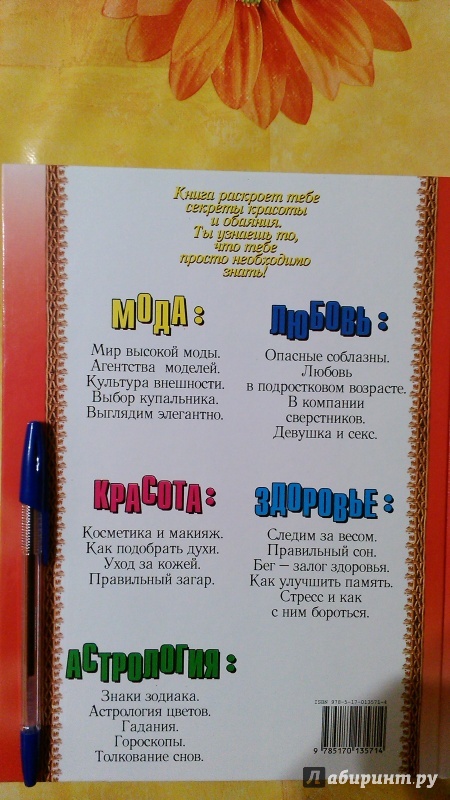 Книга раскроет тебе
секреты красоты
и обаяния.
Ты узнаешь то,
что тебе
просто необходимо
знать!
МОДА:
Мир высокой моды.
Агентства моделей.
Культура внешности.
Выбор купальника.
Выглядим элегантно.
ЛЮБОВЬ:
Опасные соблазны.
Любовь
в подростковом возрасте.
В компании
сверстников.
Девушка и секс.
КРАСОТА:
Косметика и макияж.
Как подобрать духи.
Уход за кожей.
Правильный загар.
ЗДОРОВЬЕ:
Следим за весом.
Правильный сон.
Бег — залог здоровья.
Как улучшить память.
Стресс и как
с ним бороться.
АСТРОЛОГИЯ:
Знаки зодиака.
Астрология цветов.
Гадания.
Гороскопы.
Толкование снов.
ISBN 978-5-17-013571-4
9 785170 135714
Лабиринт.ру